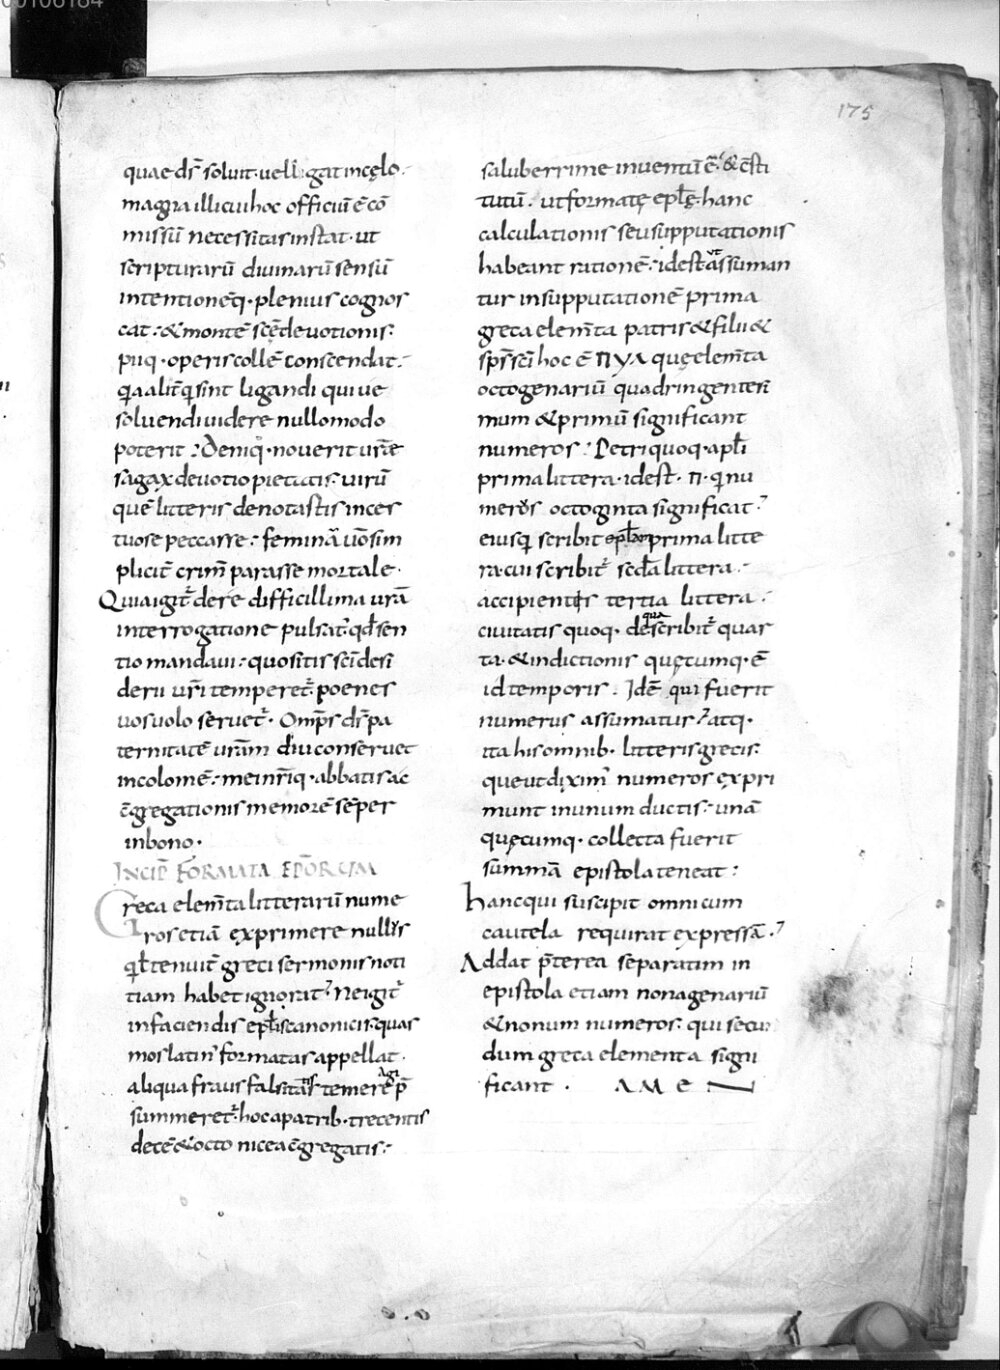 175
quae ds̄ soluit · uelligat incęlo ·
magna illicui hoc officiū ē cō
missū necessitas instat · ut
scripturarū diuinarū sensū
intentionēq · plenius cognos
cat : & montē scē deuotionis :
piiq · operis collē conscendat :
q̄a alit̄ q̄ sint ligandi qui ue
soluendi uidere nullomodo
poterit : Deniq · nouerit ur̄ae
sagax deuotio pietatis : uirū
quē litteris denotastis inces
tuose peccasse : feminā u͞o sim
plicit̄ crim̄ parasse mortale ·
Quia igit̄ de re difficillima ur̄a
interrogatione pulsat̄ · qd̄ sen
tio mandaui : quo sitis sc̄i desi
derii ur̄i temperet̄ · poenes
uos uolo seruet̄ · Omp̄s ds̄ pa
ternitatē ur̄am diu conseruet
incolomē : meinr̄iq · abbatis ac
c̄gregationis memorē sēper
in bono ·
INCIP̄ FORMATA EPŌRUM
Greca elem̄ta litterarū nume
ros etiā exprimere nullus
q̄l tenuit̄ greci sermonis noti
tiam habet ignorat : Ne igit̄
in faciendis epl̄is canonicis · quas
mos latin̄ formatas appellat ·
aliqua fraus falsitatis temere agi p̄
summeret̄ · hoc a patrib · trecentis
decē & octo nicea c̄gregatis :
saluberrime inuentū ē · & c̄sti
tutū · ut formatę epl̄ę · hanc
calculationis seu supputationis
habeant rationē : id est ut assuman
tur in supputationē prima
greca elem̄ta patris & filii &
sps̄ sc̄i hoc ē π υ λ quę elem̄ta
octogenariū quadringentesi
mum & primū significant
numeros : Petri quoq · apl̄i
prima littera · id est · π · q̄ nu
merus octoginta significat :
eiusq̄ scribit epl̄am prima litte
ra · cui scribit̄ scd̄a littera ·
accipientis tertia littera :
ciuitatis quoq · de qua scribit̄ quar
ta · & indictionis quęcumq · ē
id temporis . Idē qui fuerit
numerus assumatur : atq ·
ita his omnib · litteris grecis :
que ut dixim̄ numeros expri
munt in unum ductis : unā
quęcumq · collecta fuerit
summā epistola teneat :
hanc qui suscipit omni cum
cautela requirat expressā :
Addat p̄terea separatim in
epistola etiam nonagenariū
& nonum numeros : qui secun
dum greca elementa signi
ficant . Λ Μ Є Ν